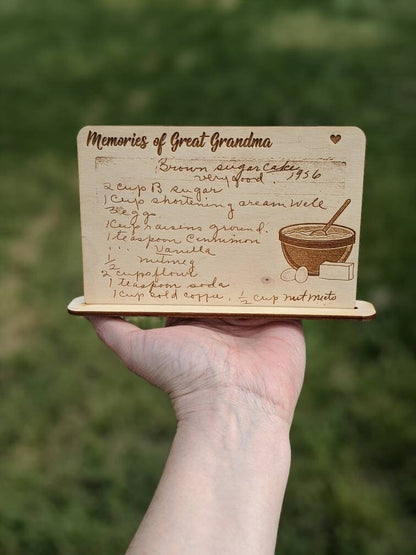 Memories of Great Grandma
Brown sugar Cake
very good. 1956
2 cup B sugar
1 Cup shortening cream well
3 egg
1 Cup raisins ground.
1 teaspoon Cinnimon
" " Vanilla
1/2 nutmeg
2 cups flour
1 teaspoon soda
1 cup cold coffee, 1/2 cup nut meets